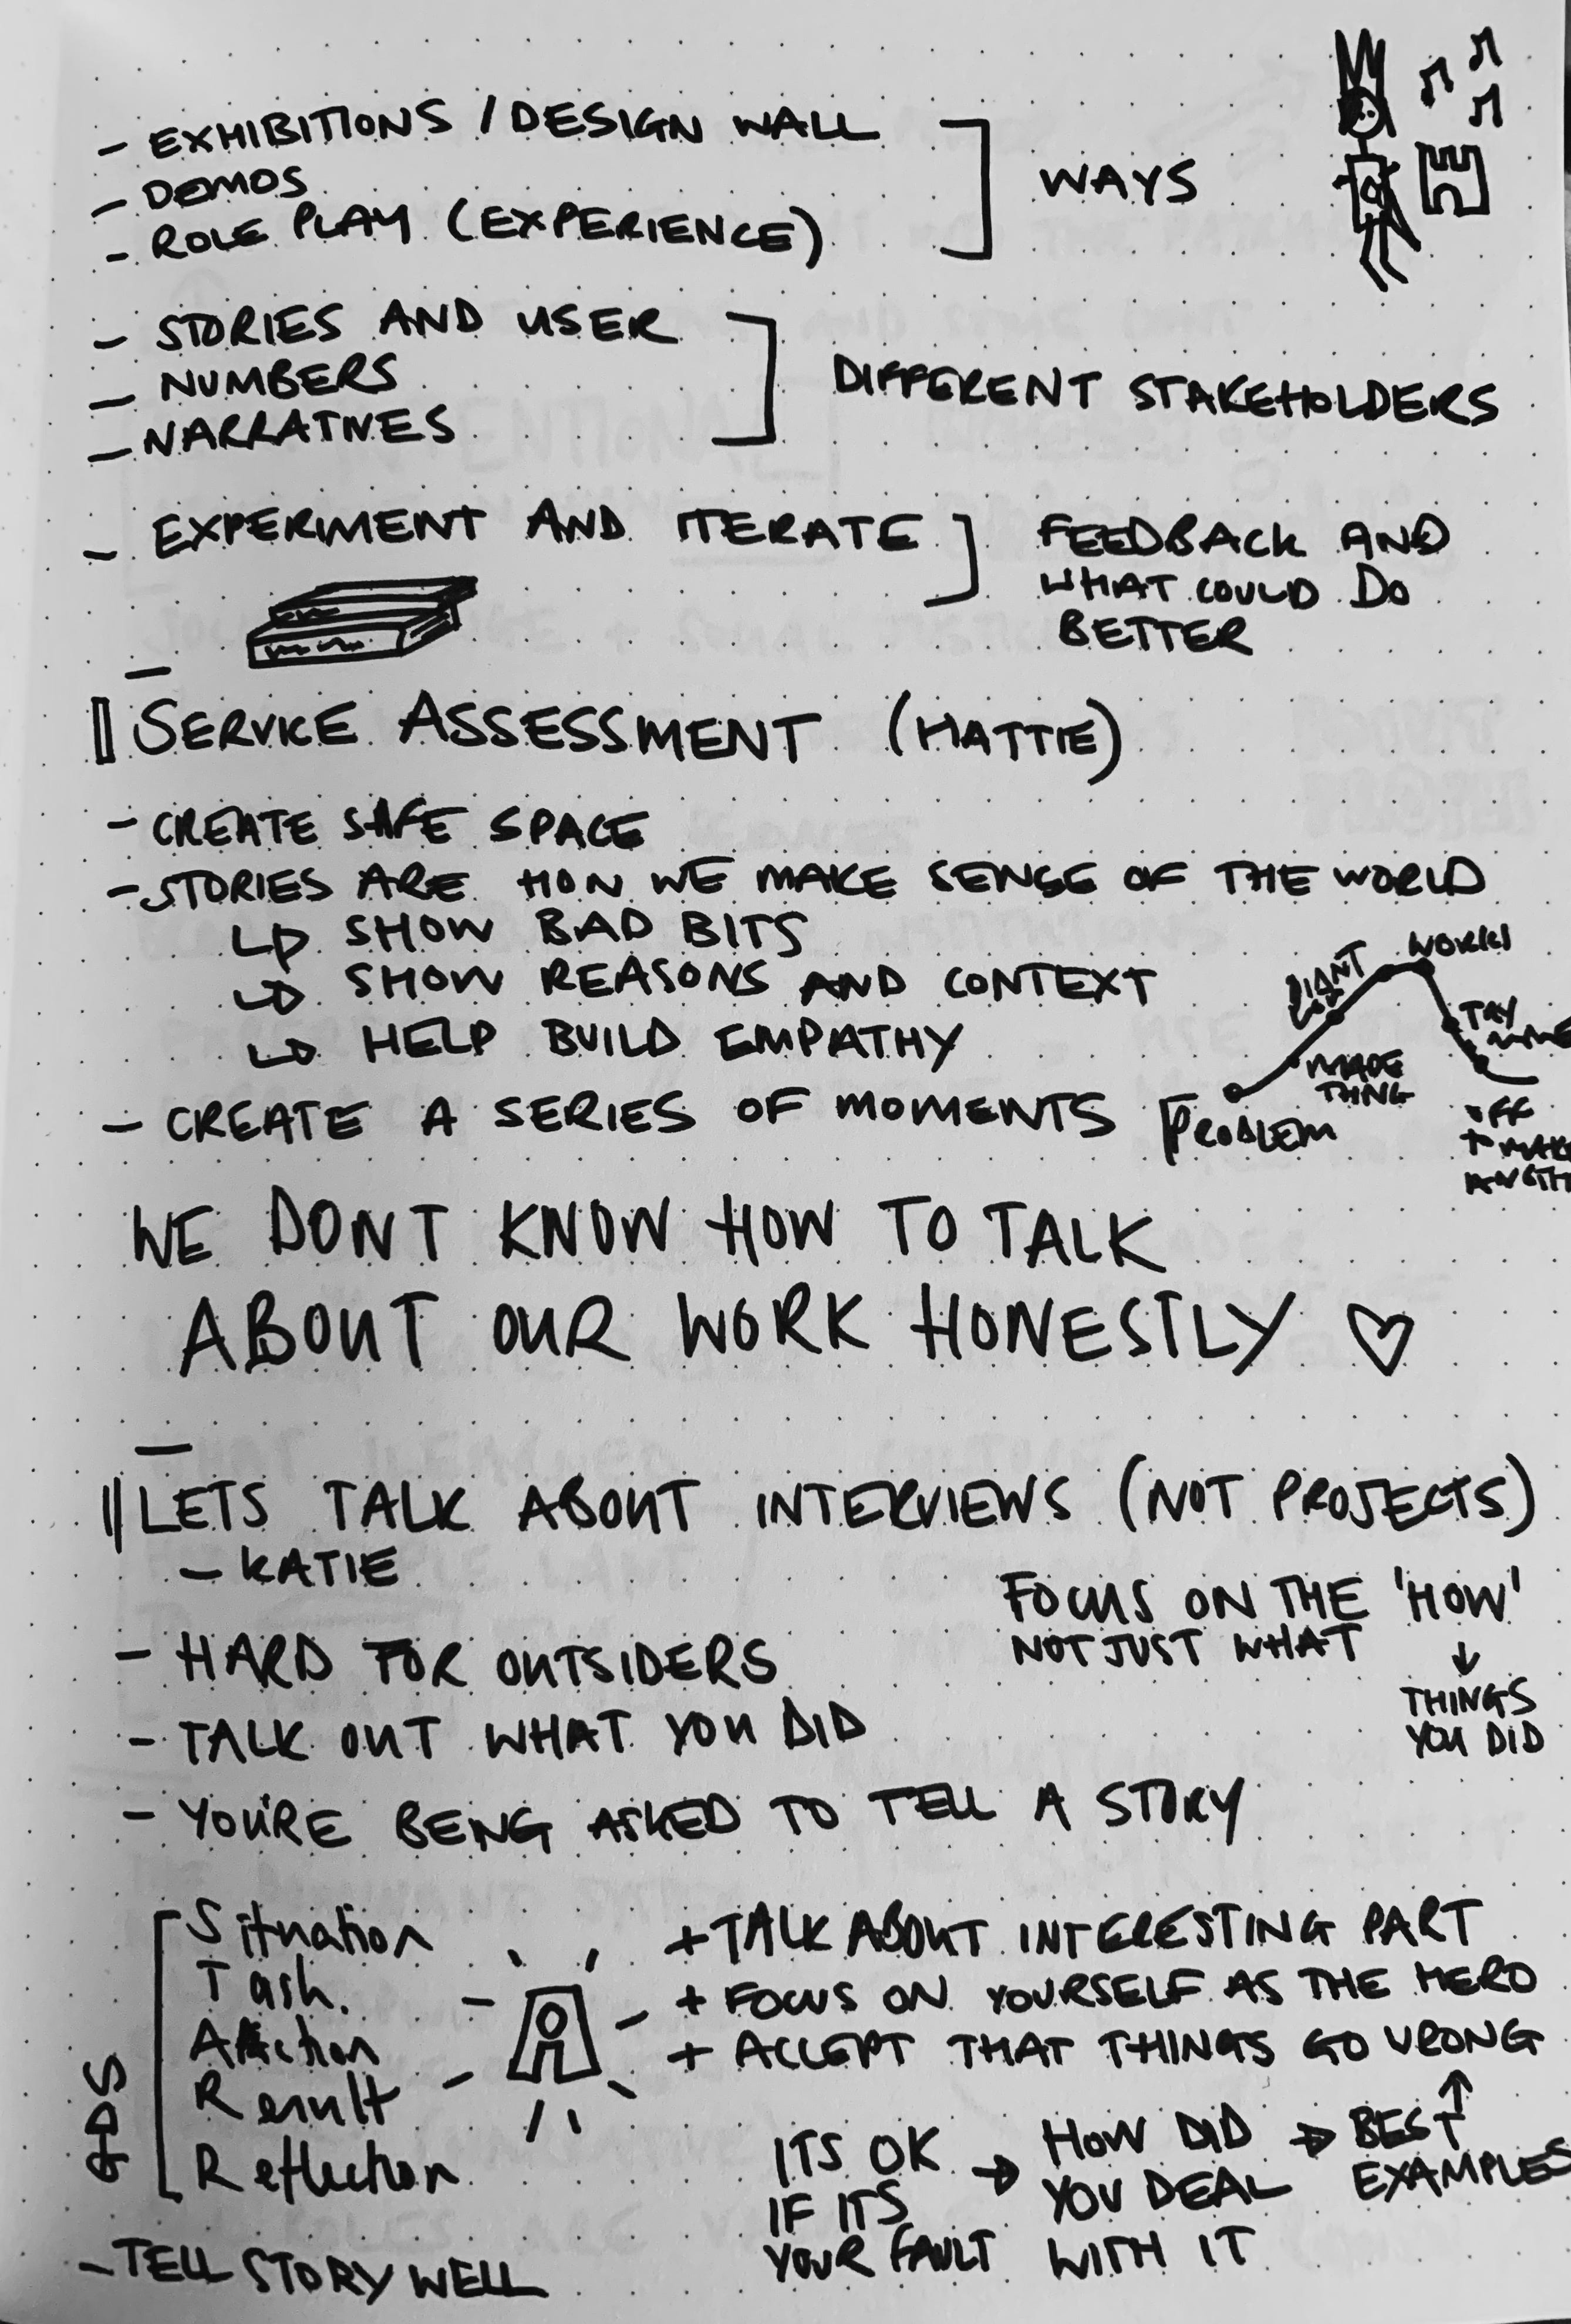 - EXHIBITIONS / DESIGN WALL
- DEMOS
- ROLE PLAY (EXPERIENCE)
WAYS
- STORIES AND USER
- NUMBERS
- NARRATIVES
DIFFERENT STAKEHOLDERS
- EXPERIMENT AND ITERATE
FEEDBACK AND
WHAT COULD DO
BETTER
SERVICE ASSESSMENT (HATTIE)
- CREATE SAFE SPACE
- STORIES ARE HOW WE MAKE SENSE OF THE WORLD
↳ SHOW BAD BITS
↳ SHOW REASONS AND CONTEXT
↳ HELP BUILD EMPATHY
- CREATE A SERIES OF MOMENTS
PROBLEM
MADE
THING
DIDNT
WORK!
TRY
OFF
WE DONT KNOW HOW TO TALK
ABOUT OUR WORK HONESTLY ♡
LETS TALK ABOUT INTERVIEWS (NOT PROJECTS)
- KATIE
FOCUS ON THE 'HOW'
NOT JUST WHAT
↓
THINGS
YOU DID
- HARD FOR OUTSIDERS
- TALK OUT WHAT YOU DID
- YOU'RE BEING ASKED TO TELL A STORY
GDS
Situation
Task.
Action
Result
Reflection
+ TALK ABOUT INTERESTING PART
+ FOCUS ON YOURSELF AS THE HERO
+ ACCEPT THAT THINGS GO WRONG
ITS OK
IF ITS
YOUR FAULT
→ HOW DID
YOU DEAL
WITH IT
→ BEST
EXAMPLES
- TELL STORY WELL